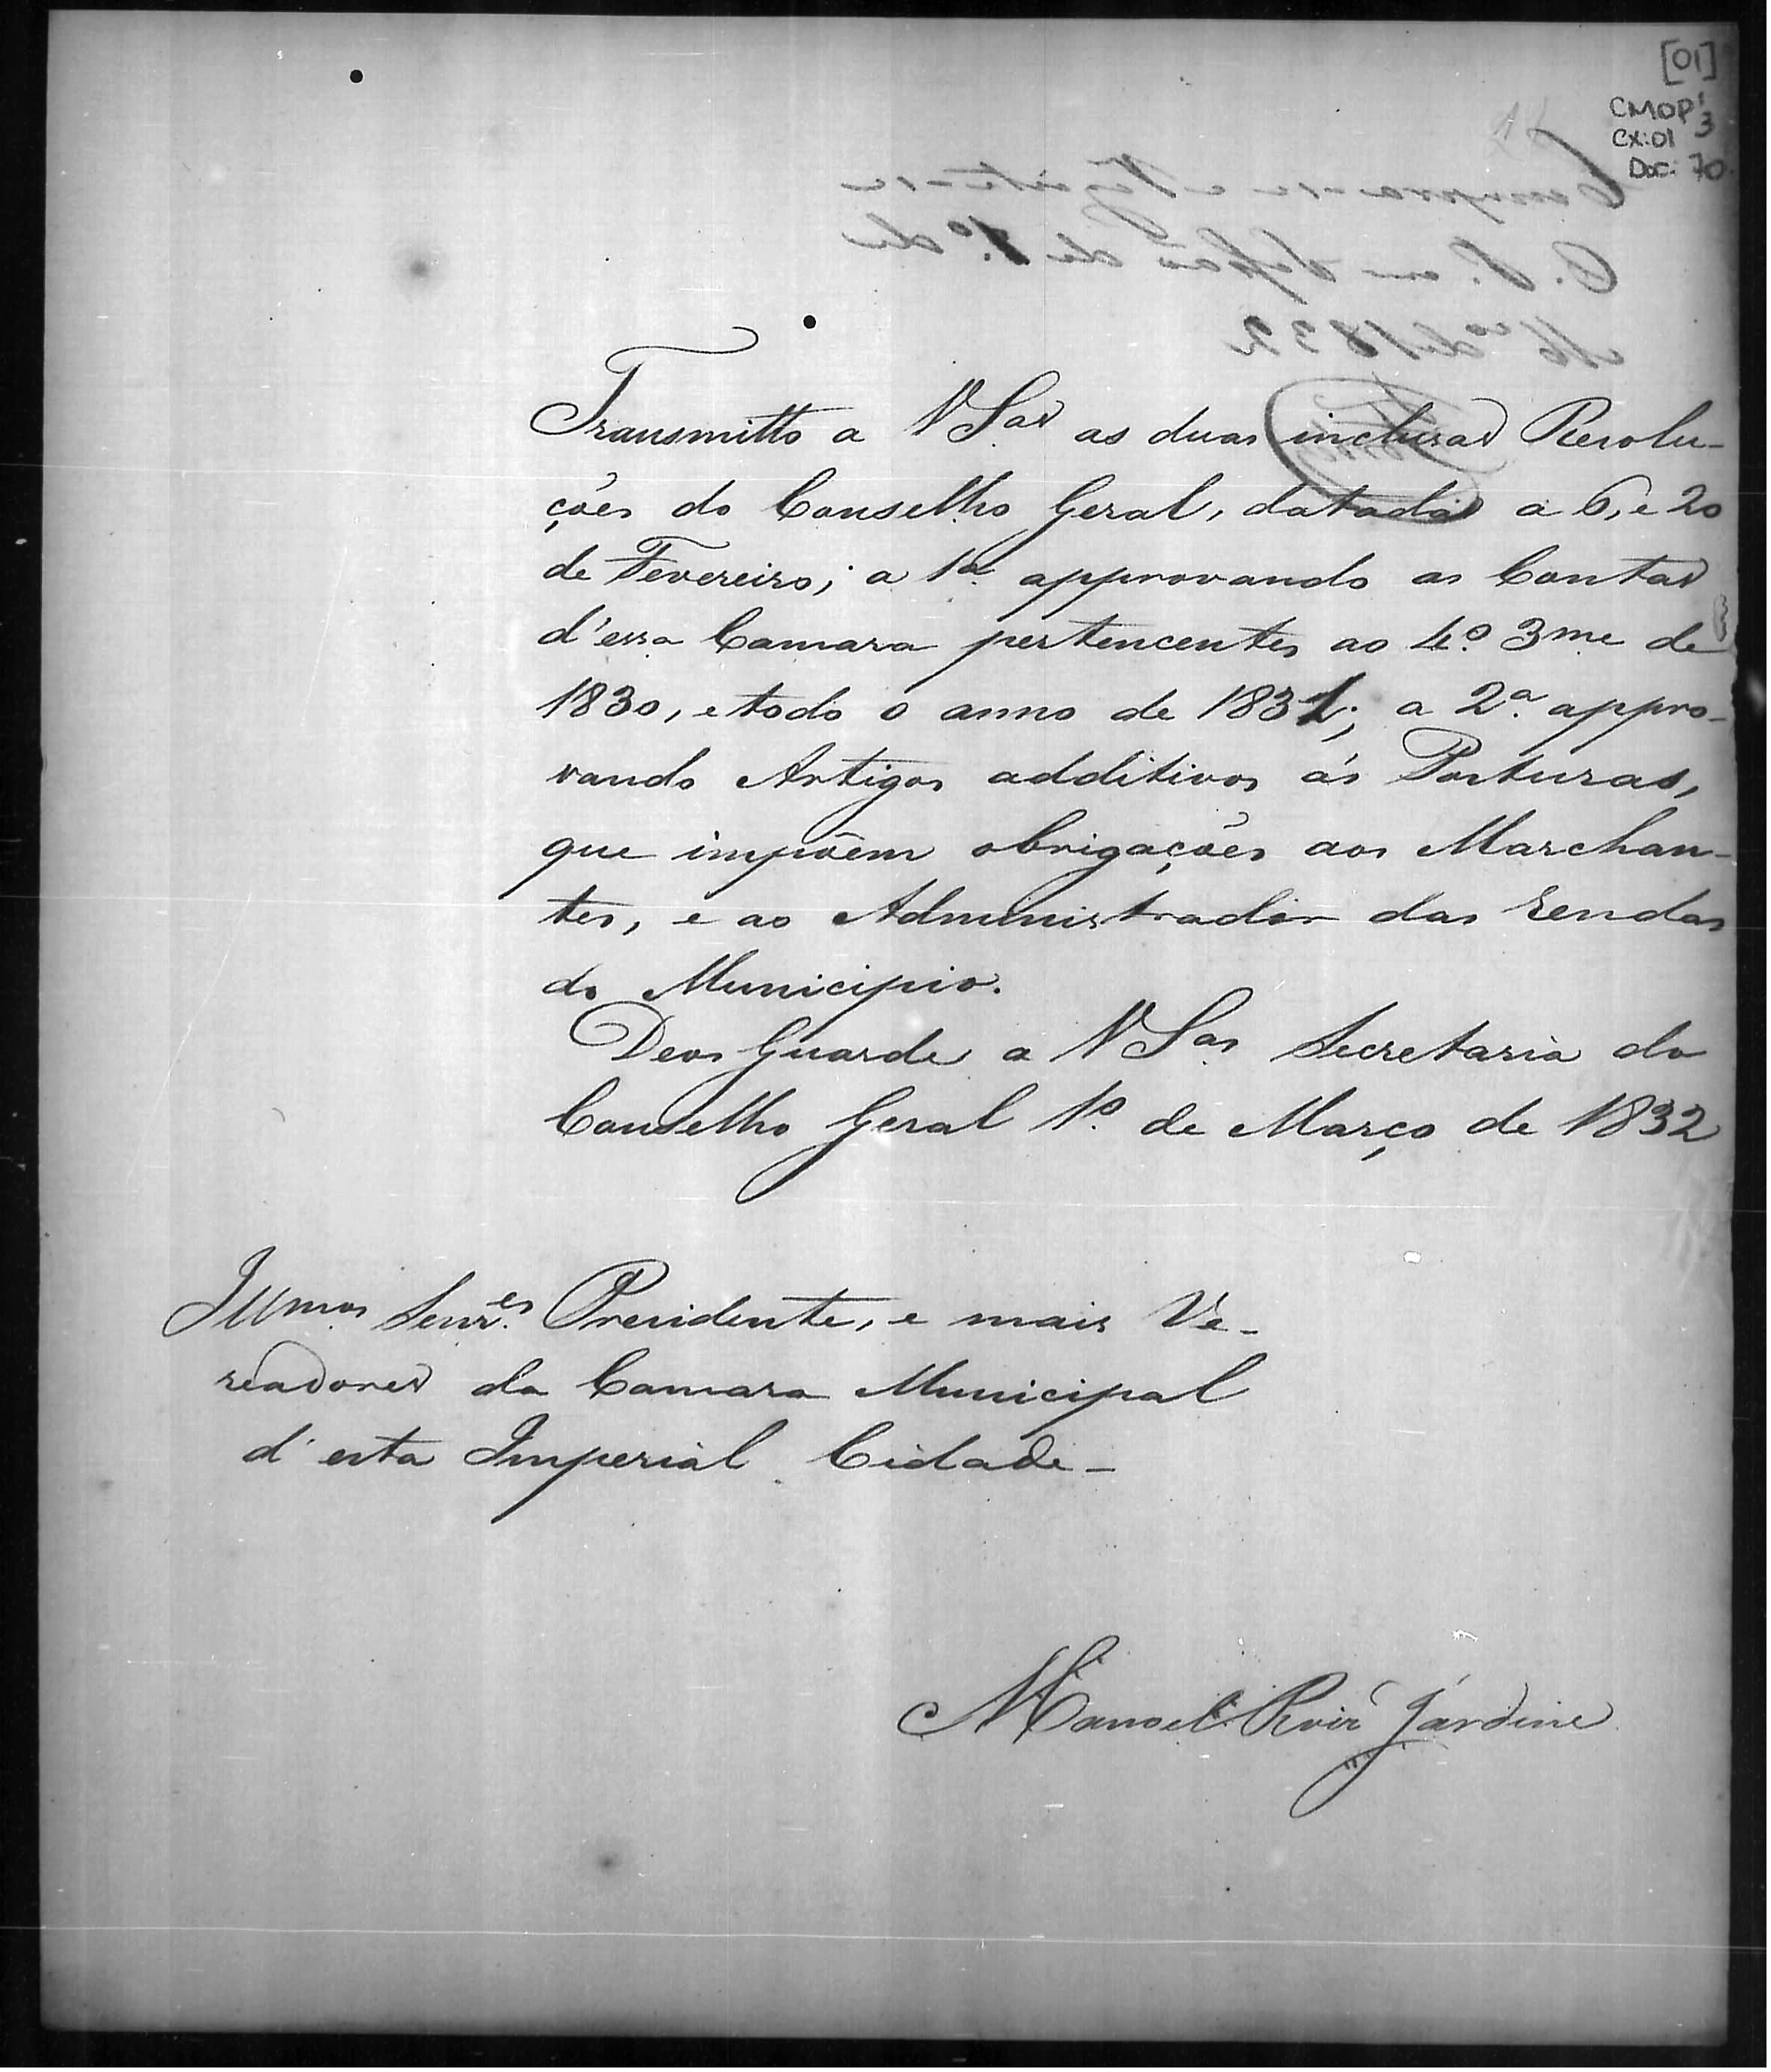 [01]
CMOP 1
3
CX:01
DOC: 70
Cumpra-se e Registe-se
O. P. em Sessão de 7.º de
M.ço de 1832
Transmitto a V S.as as duas inclusas Resolu-
ções do Conselho Geral, datadas a 6, e 20
de Fevereiro; a 1.a approvando as Contas
d'essa Camara pertencentes ao 4.º 3me de
1830, e todo o anno de 1831; a 2.a appro-
vando Artigos additivos ás Posturas,
que impõem obrigações aos Marchan-
tes, e ao Administrador das rendas
do Municipio.
Deos Guarde a V S.as Secretaria do
Conselho Geral 1.º de Março de 1832
Illmos Senr.es Presidente, e mais Ve-
readores da Camara Municipal
d'esta Imperial Cidade-
Manoel Roiz Jardim